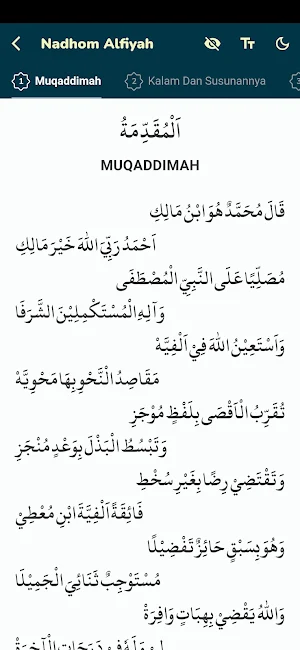 Nadhom Alfiyah
1 Muqaddimah 2 Kalam Dan Susunannya 3
اَلْمُقَدِّمَةُ
MUQADDIMAH
قَالَ مُحَمَّدٌ هُوَ ابْنُ مَالِكِ
اَحْمَدُ رَبِّيَ اللهَ خَيْرَ مَالِكِ
مُصَلِّيًا عَلَى النَّبِيِّ الْمُصْطَفَى
وَآلِهِ الْمُسْتَكْمِلِيْنَ الشَّرَفَا
وَاَسْتَعِيْنُ اللهَ فِيْ اَلْفِيَّهْ
مَقَاصِدُ النَّحْوِ بِهَا مَحْوِيَّهْ
تُقَرِّبُ الْاَقْصَى بِلَفْظٍ مُوْجَزِ
وَتَبْسُطُ الْبَذْلَ بِوَعْدٍ مُنْجَزِ
وَتَقْتَضِيْ رِضًا بِغَيْرِ سُخْطِ
فَائِقَةً اَلْفِيَّةَ ابْنِ مُعْطِيْ
وَهُوَ بِسَبْقٍ حَائِزٌ تَفْضِيْلًا
مُسْتَوْجِبٌ ثَنَائِيَ الْجَمِيْلَا
وَاللهُ يَقْضِيْ بِهِبَاتٍ وَافِرَةْ